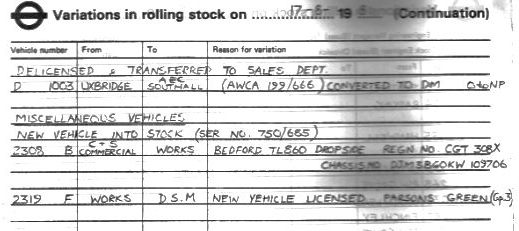 Variations in rolling stock on 17-8- 19 (Continuation)
Vehicle number From To Reason for variation
DELICENSED & TRANSFERRED TO SALES DEPT.
D 1003 UXBRIDGE AEC SOUTHALL (AWCA 199/666) CONVERTED TO DM 0to NP
MISCELLANEOUS VEHICLES
NEW VEHICLE INTO STOCK (SER NO. 750/655)
2308 B C+S COMMERCIAL WORKS BEDFORD TL860 DROPSIDE REGN NO. CGT 308X
CHASSIS NO. DJM3BGOKW 109706
2319 F WORKS D.S.M NEW VEHICLE LICENSED PARSONS GREEN (Gp3)